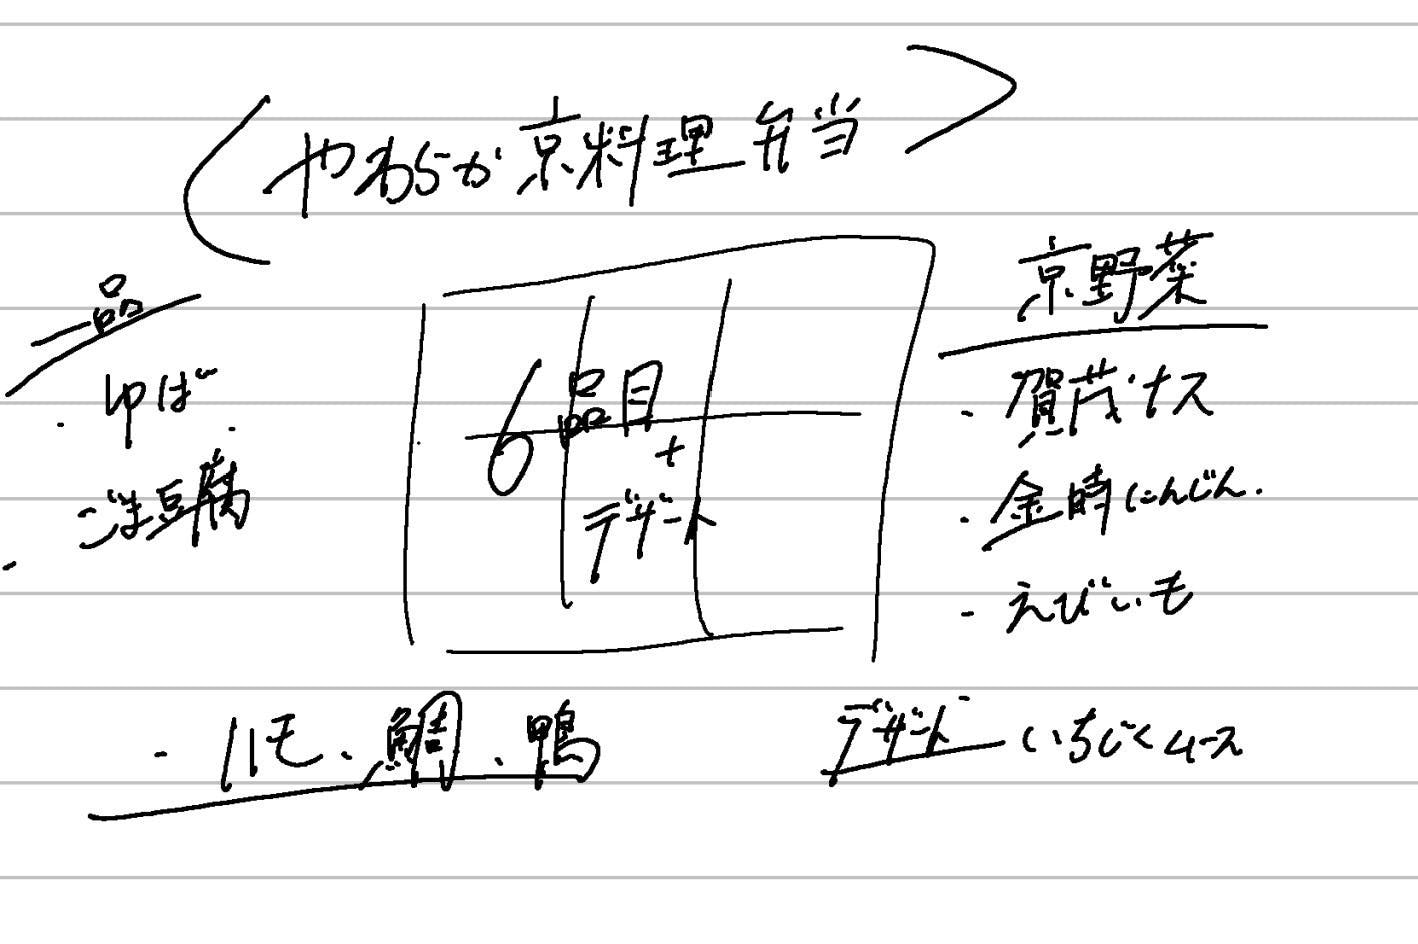 やわらか京料理弁当
一品
・ゆば
・ごま豆腐
6品目
+
デザート
京野菜
・賀茂ナス
・金時にんじん.
・えびいも
・ハモ、鯛、鴨
デザート いちじくムース